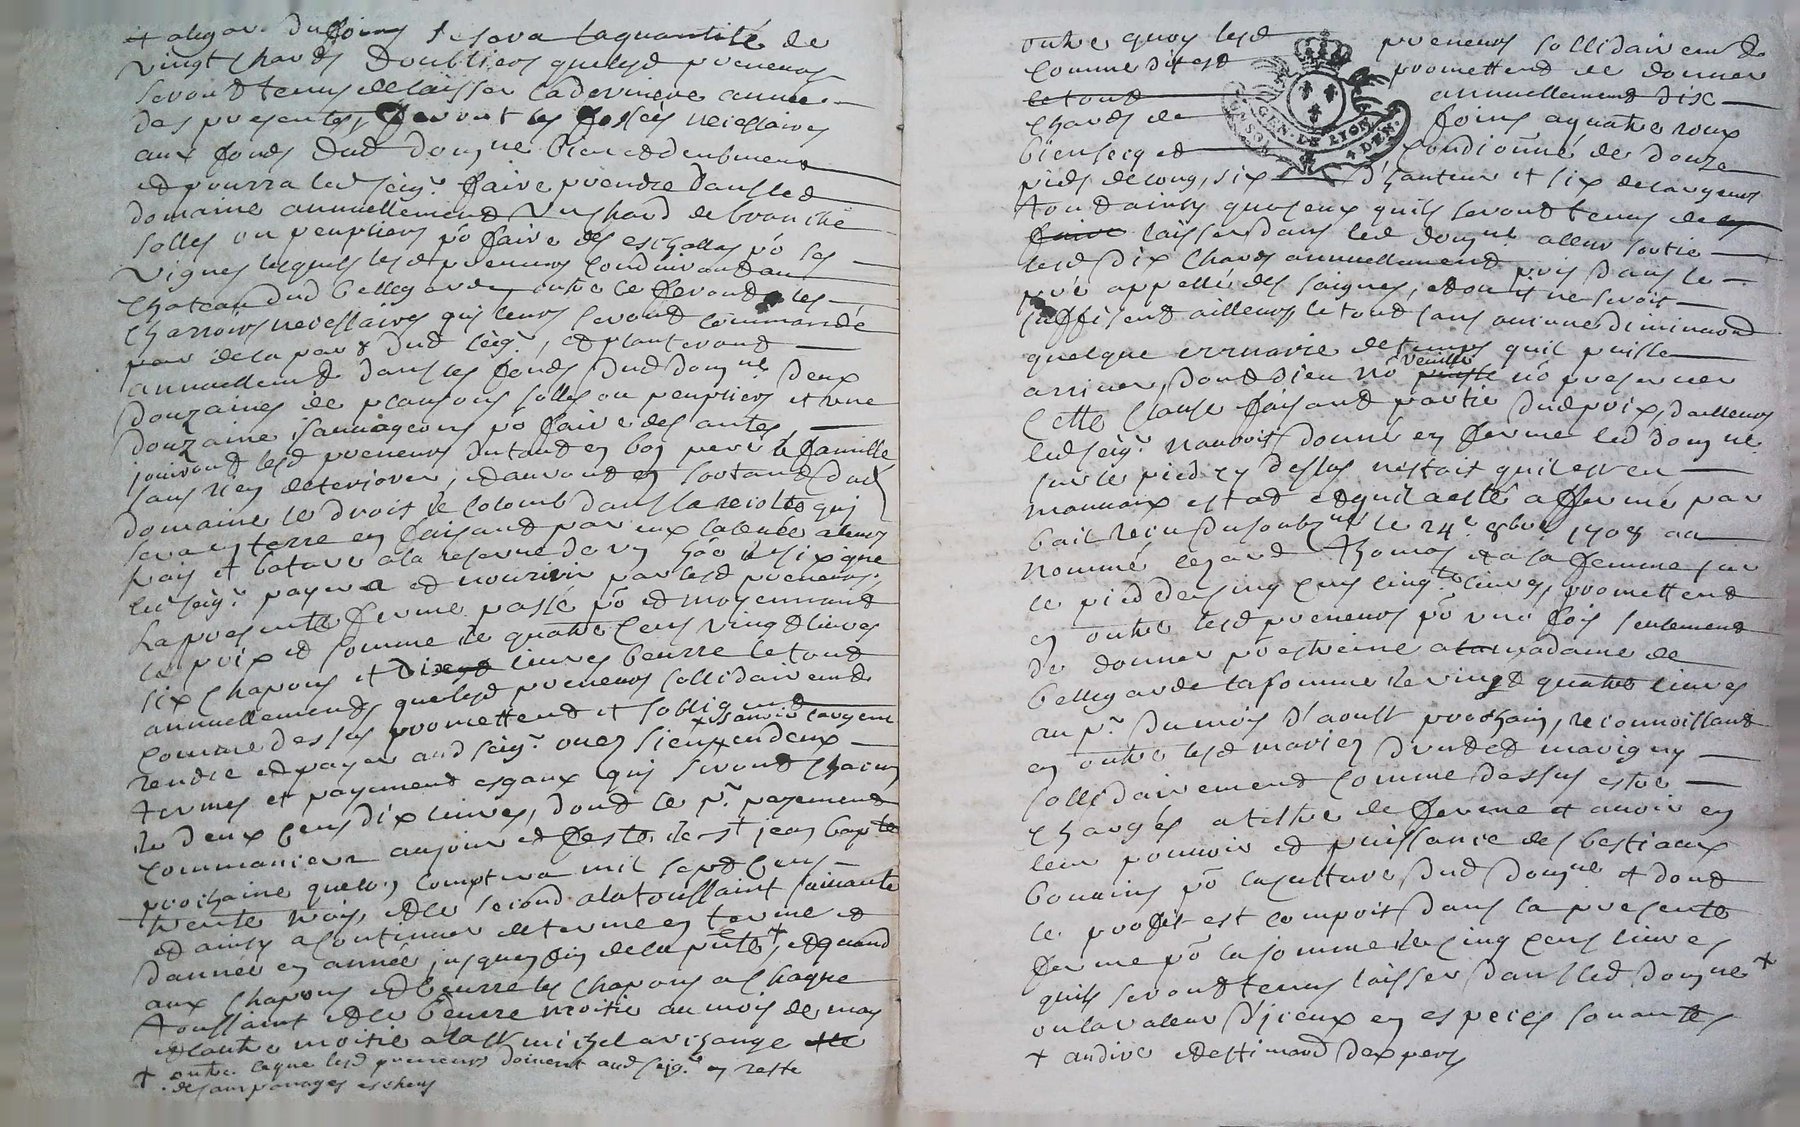 + alegard du foing se sera la quantité de
vingt chards doubliers quelesd preneurs
seront tenus de laisser la derniere année
des presentes, feront les fossés necessaires
aux fonds dud domne bien et deubment
et pourra led seigr faire prendre dans led
domaine annuellement un chard de branche
solles ou peupliers po faire des eschallas po ses
vignes lesquels lesd preneurs conduiront au
chateau dud bellegarde, outre ce feront les
charrois necessaires quj leurs seront commandé
par de la part dud seigr, et planteront
annuellemt dans les fonds dud domne deux
douzaines de plançons solles ou peupliers et une
douzaine sauvageons po faire des antes,
jouiront lesd preneurs du tout en bon pere de famille
sans rien deteriorer, et auront en sortant dud
domaine le droit de colomb dans la recolte quj
sera en terre en faisant par eux la levée a leurs
frais et batture a la reserve d'un
led seigr payera et nourrir par lesd preneurs.
La presente ferme passé po et moyennant
le prix et somme de quatre cens vingt livres
six chapons et dix livres beurre le tout
annuellement, quelesd preneurs sollidairemt
comme dessus promettent et sobligent
rendre et payer aud seigr ou es siens en deux
termes et payement esgaux quj seront chacun
de deux cens dix livres, dont le pr payement
commancera au jour et feste de st jean bapte
prochaine quelon comptera mil sept cens
trente trois, et le second a la toussaint suivante
et ainsy a continuer de terme en terme et
dannée en année jusques fin de la pnte +, et quand
aux chapons et beurre les chapons a chaque
toussaint et le beurre moitie au mois de may
et lautre moitie a la st michel archange
+ outre ce que lesd preneurs doivent aud seigr en reste
des arrerages escheus
outre quoy lesd preneurs sollidairemt
comme dit est promettent de donner
le tout annuellement dix
chards de foins a quatre roux
bien secq et condiōnné de douze
pieds de long, six d'hauteur et six de largeurs
tout ainsy que ceux quils seront tenus de
faire laisser dans led domne a leur sortie
lesd dix chards annuellement pris dans le
pré appellé des saignes, et ou il ne seroit
suffisent ailleurs le tout sans aucune diminuōn
quelque de temps quil puisse
arriver, dont dieu no veuille puisse no preserver
Cette clause faisant partie dud prix, d'ailleurs
led seigr n'auroit donné en ferme led domne
sur le pied cy dessus n'estoit quil est en
mauvaix estat et quil a esté affermé par
bail receu du soubzne le 24e 8bre 1708 au
nommé legard thomas et a sa femme sur
le pied de cinq cens cinqte livres, promettent
en outre lesd preneurs po une fois seulement
de donner po estreine a la madame de
bellegarde la somme de vingt quatre livres
au pr du mois d'aoust prochain, reconnoissant
en outre lesd mariez drutet marigny
sollidairement comme dessus estre
chargés a tiltre de ferme et avoir en
leur pouvoir et puissance des bestiaux
bouvins po la culture dud domne et dont
le profit est compris dans la presente
ferme po la somme de cinq cens livres
quils seront tenus laisser dans led domne +
ou la valeur d'iceux en especes sonantes
+ au dire et estimaōn d'expers
GEN. DE LYON
4 DEN.